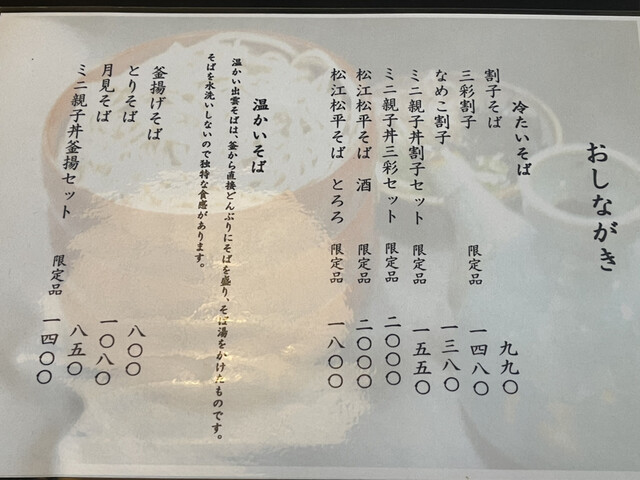 おしながき
冷たいそば
割子そば 九九〇
三彩割子 限定品 一四八〇
なめこ割子 一三八〇
ミニ親子丼割子セット 限定品 一五五〇
ミニ親子丼三彩セット 限定品 二〇〇〇
松江松平そば 酒 限定品 二〇〇〇
松江松平そば とろろ 限定品 一八〇〇
温かいそば
温かい出雲そばは、釜から直接どんぶりにそばを盛り、そば湯をかけたものです。
そばを水洗いしないので独特な食感があります。
釜揚げそば 八〇〇
とりそば 一〇八〇
月見そば 八五〇
ミニ親子丼釜揚セット 限定品 一四〇〇